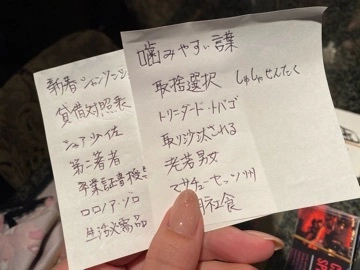 噛みやすい言葉
取捨選択 しゅしゃせんたく
トリニダード・トバゴ
取り沙汰される
老若男女
マサチューセッツ州
社食
新春シャンソンシ
貸借対照表
シャア少佐
第二著者
卒業証書授
ロロノア・ゾロ
生活必需品